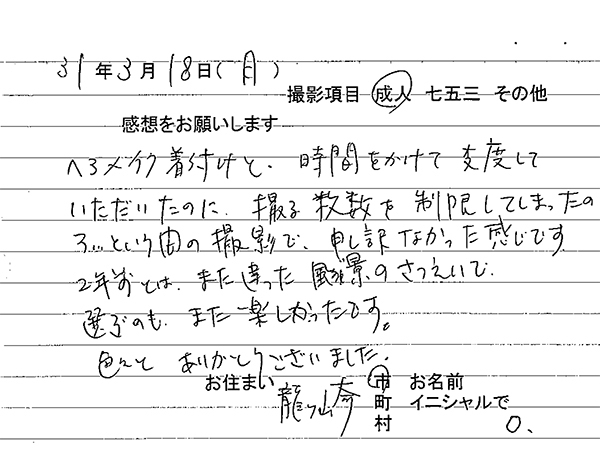 31年3月18日(月)
撮影項目 成人 七五三 その他
感想をお願いします
ヘアメイク着付けと、時間をかけて支度して
いただいたのに、撮る枚数を制限してしまったの
で、という間の撮影で、申し訳なかった感じです
2年前とは、また違った風景のさつえいで
選ぶのも、また楽しかったです。
色々と ありがとうございました。
お住まい 龍ヶ崎 市 お名前
町 イニシャルで
村 O.